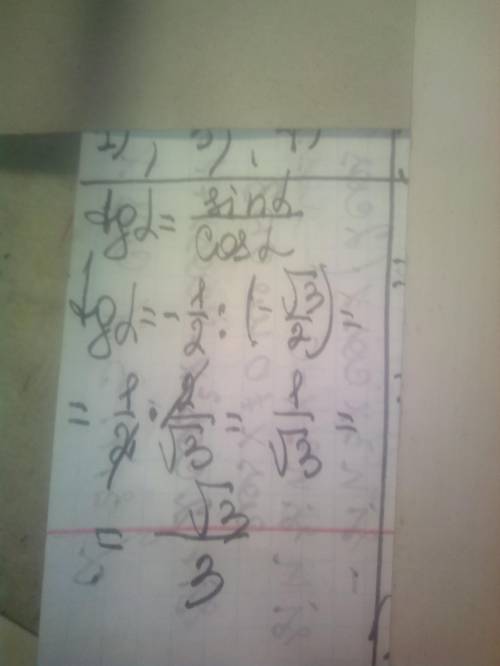 tgα = sinα / cosα
tgα = -1/2 : (-√3/2) =
= 1/2 · 2/√3 = 1/√3 =
= √3/3